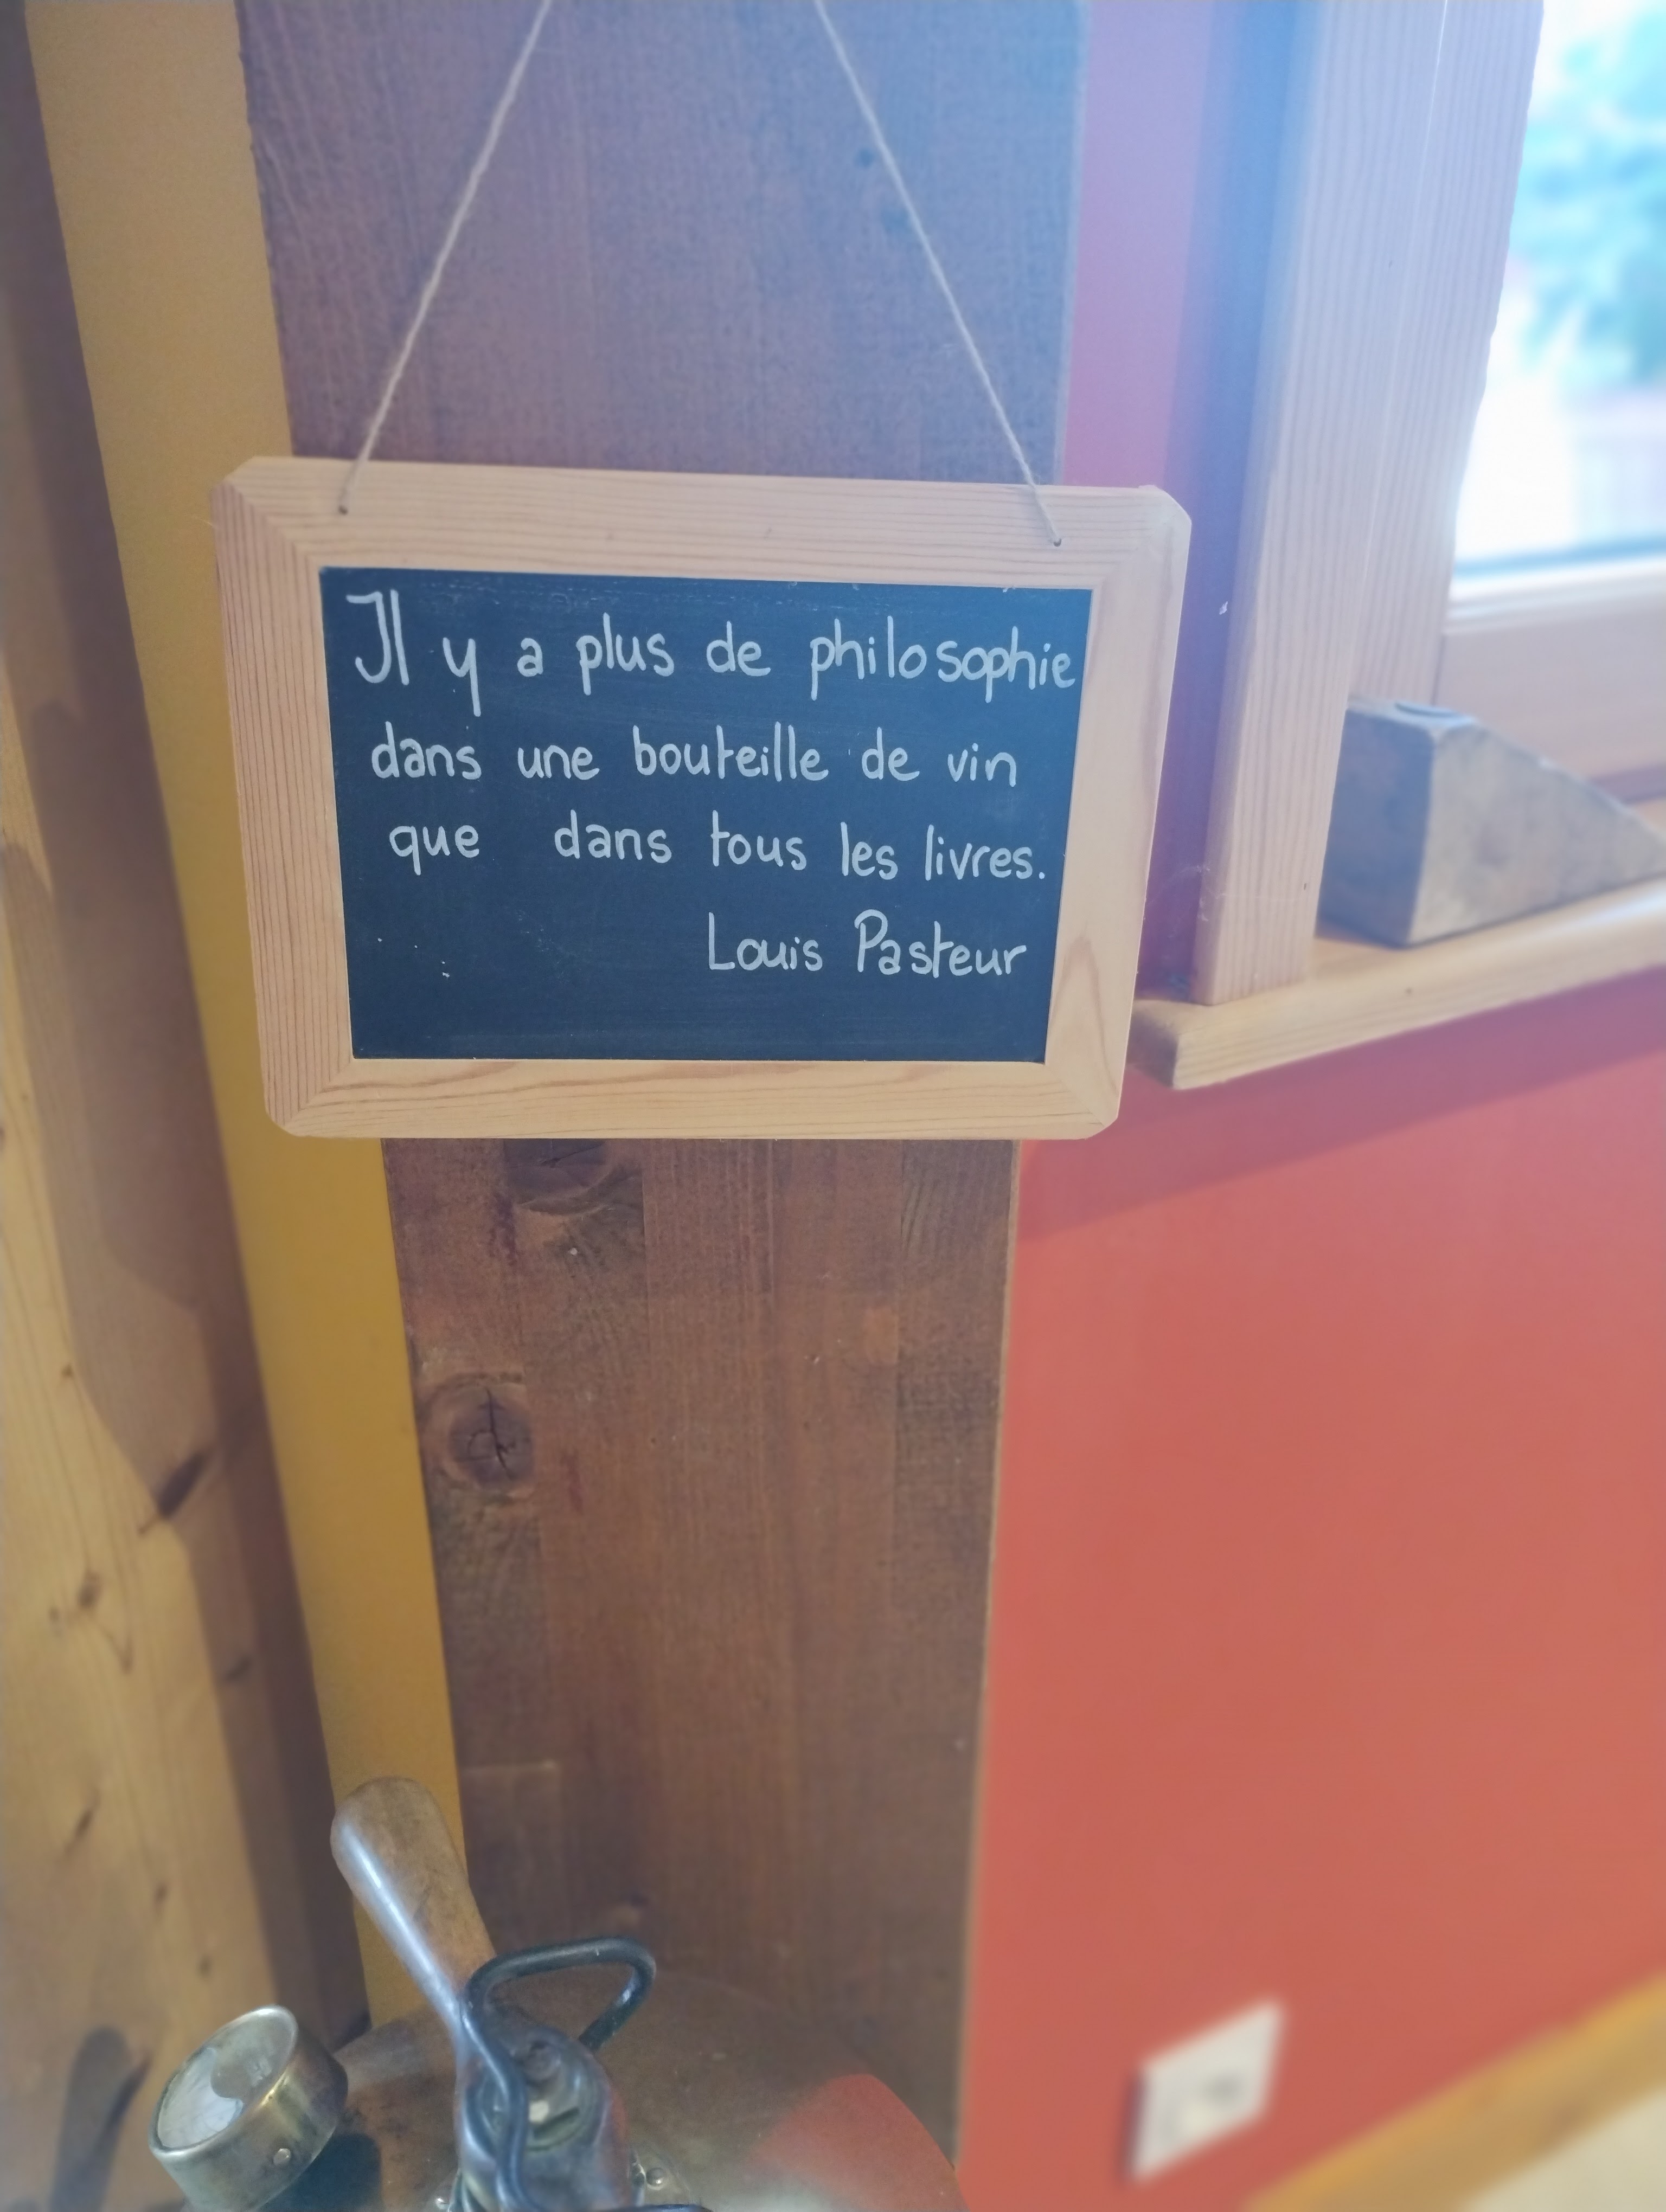 Il y a plus de philosophie
dans une bouteille de vin
que dans tous les livres.
Louis Pasteur